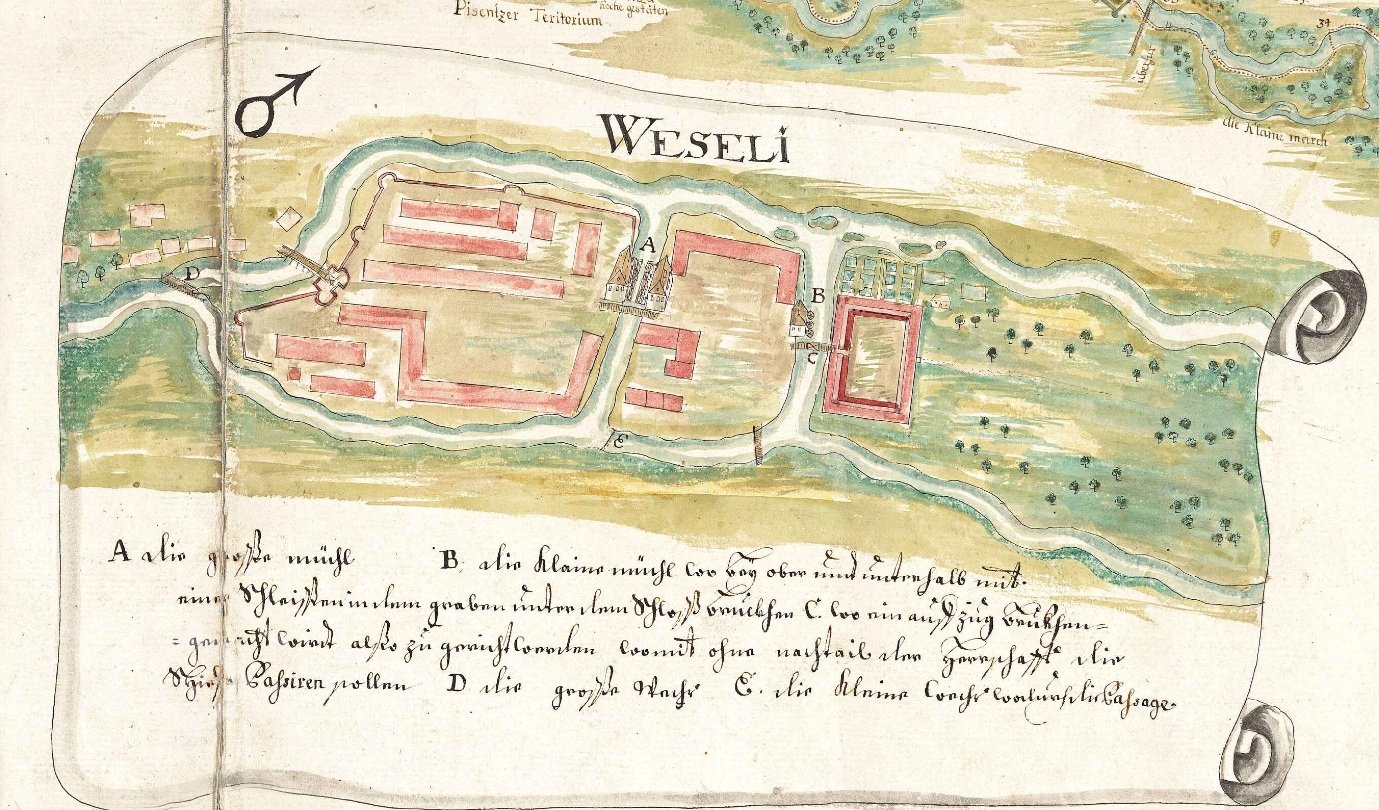 Pisentzer Teritorium
34
überfur
die Klaine march
WESELI
A
B
C
D
E
A die große mühl B. die Klaine mühl wo beÿ ober und unterhalb mit
einer Schleißen in dem graben unter dem Schloß brückhen C. wo ein auffzüg brükhen=
=gemacht wirdt also zu gericht werden womit ohne nachtail der Herrschafft die
Schieffe Passiren sollen D die große Wehr E. die Kleine wehr wodurch die Passage